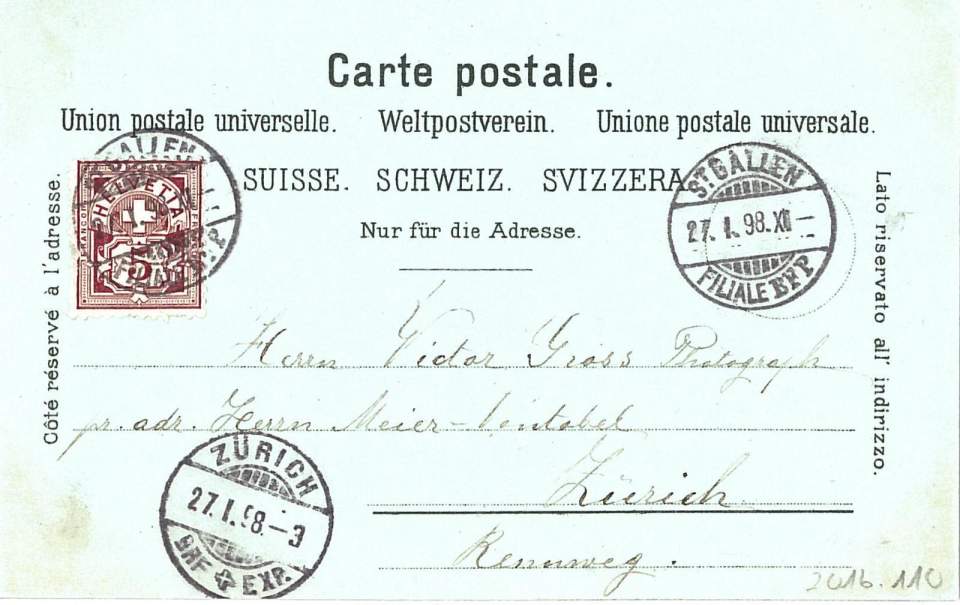 Carte postale.
Union postale universelle. Weltpostverein. Unione postale universale.
SUISSE. SCHWEIZ. SVIZZERA
Nur für die Adresse.
Côté réservé à l'adresse.
Lato riservato all' indirizzo.
HELVETIA
FRANCO
5
ST. GALLEN
27. I. 98. XII –
FILIALE BFP
Herrn Victor Gross Photograph
pr. adr. Herrn Meier-Vontobel
Zürich
Rennweg.
ZÜRICH
27. I. 98. – 3
BRF EXP.
2016.110